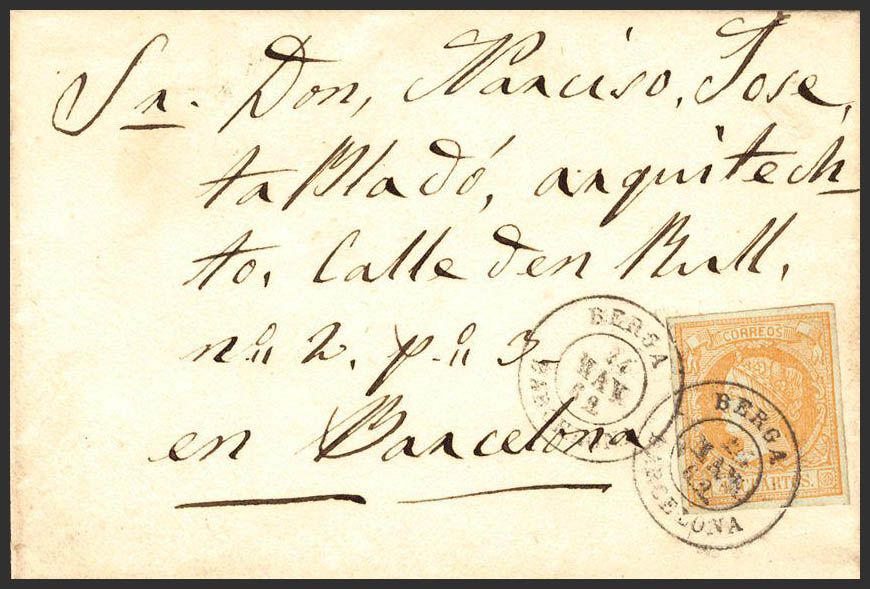 Sr. Don, Narciso, Jose,
ta Bladó, arquitech-
to, Calle den Rull,
nº 2, pº 3
en Barcelona
BERGA
MAR
62
BARCELONA
CORREOS
4 CUARTOS.
BERGA
MAR
62
BARCELONA